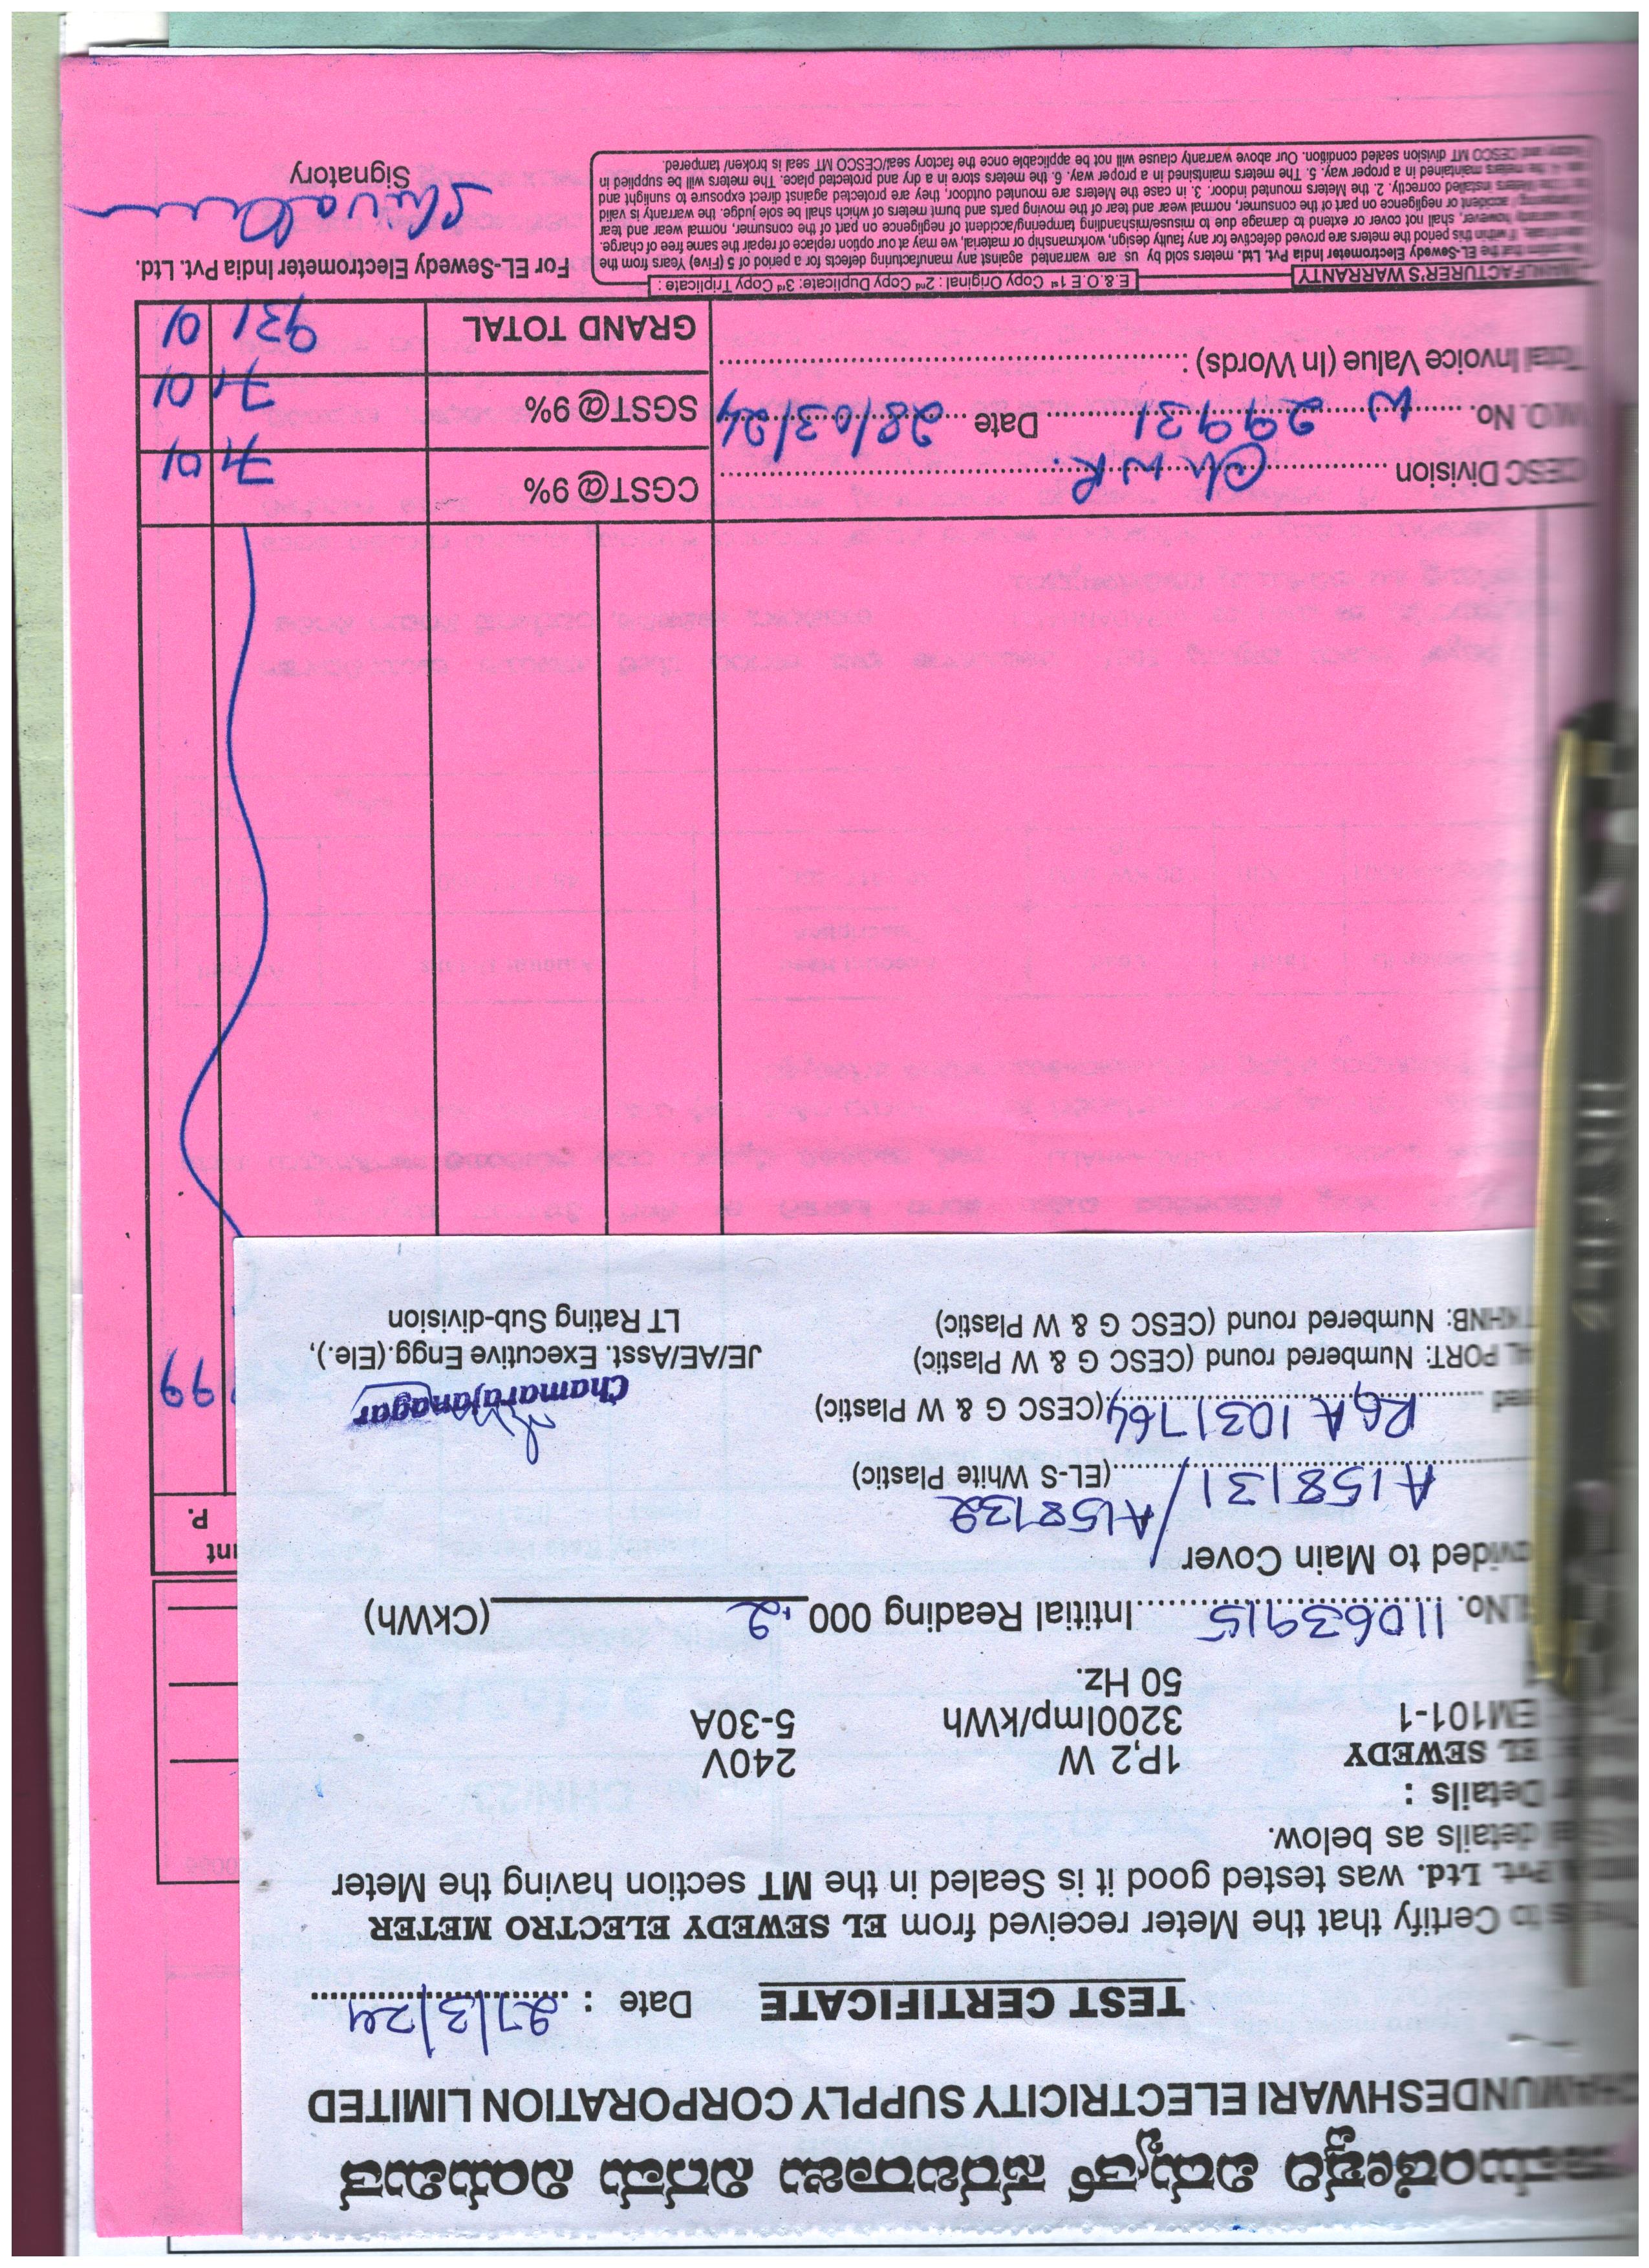 ಚಾಮುಂಡೇಶ್ವರಿ ವಿದ್ಯುತ್ ಸರಬರಾಜು ನಿಗಮ ನಿಯಮಿತ
CHAMUNDESHWARI ELECTRICITY SUPPLY CORPORATION LIMITED
TEST CERTIFICATE Date : 27/3/24
to Certify that the Meter received from EL SEWEDY ELECTRO METER
Pvt. Ltd. was tested good it is Sealed in the MT section having the Meter
details as below.
Details :
EL SEWEDY 1P,2 W 240V
EM101-1 3200Imp/kWh 5-30A
50 Hz.
No. 11063915 Intitial Reading 000 .2 (CkWh)
vided to Main Cover
A158131 / A158132 (EL-S White Plastic)
RGA 1031764 (CESC G & W Plastic)
PORT: Numbered round (CESC G & W Plastic)
KHNB: Numbered round (CESC G & W Plastic)
Chamarajanagar
JE/AE/Asst. Executive Engg.(Ele.),
LT Rating Sub-division
unt
P.
99
CESC Division Ch N R.
CGST@ 9% 71 01
No. W 29931 Date 28/03/24
SGST@ 9% 71 01
Total Invoice Value (In Words) :
GRAND TOTAL 931 01
MANUFACTURER'S WARRANTY E.& O.E 1st Copy Original : 2nd Copy Duplicate: 3rd Copy Triplicate :
that the EL-Sewedy Electrometer India Pvt. Ltd. meters sold by us are warranted against any manufacturing defects for a period of 5 (Five) Years from the
If within this period the meters are proved defective for any faulty design, workmanship or material, we may at our option replace of repair the same free of charge.
warranty however, shall not cover or extend to damage due to misuse/mishandling tampering/accident of negligence on part of the consumer, normal wear and tear
accident or negligence on part of the consumer, normal wear and tear of the moving parts and burnt meters of which shall be sole judge. the warranty is valid
the Meters installed correctly. 2. the Meters mounted indoor. 3. in case the Meters are mounted outdoor, they are protected against direct exposure to sunlight and
4. the meters maintained in a proper way. 5. The meters maintsined in a proper way. 6. the meters store in a dry and protected place. The meters will be supplied in
and CESCO MT division sealed condition. Our above warranty clause will not be applicable once the factory seal/CESCO MT seal is broken/ tampered.
For EL-Sewedy Electrometer India Pvt. Ltd.
Signatory